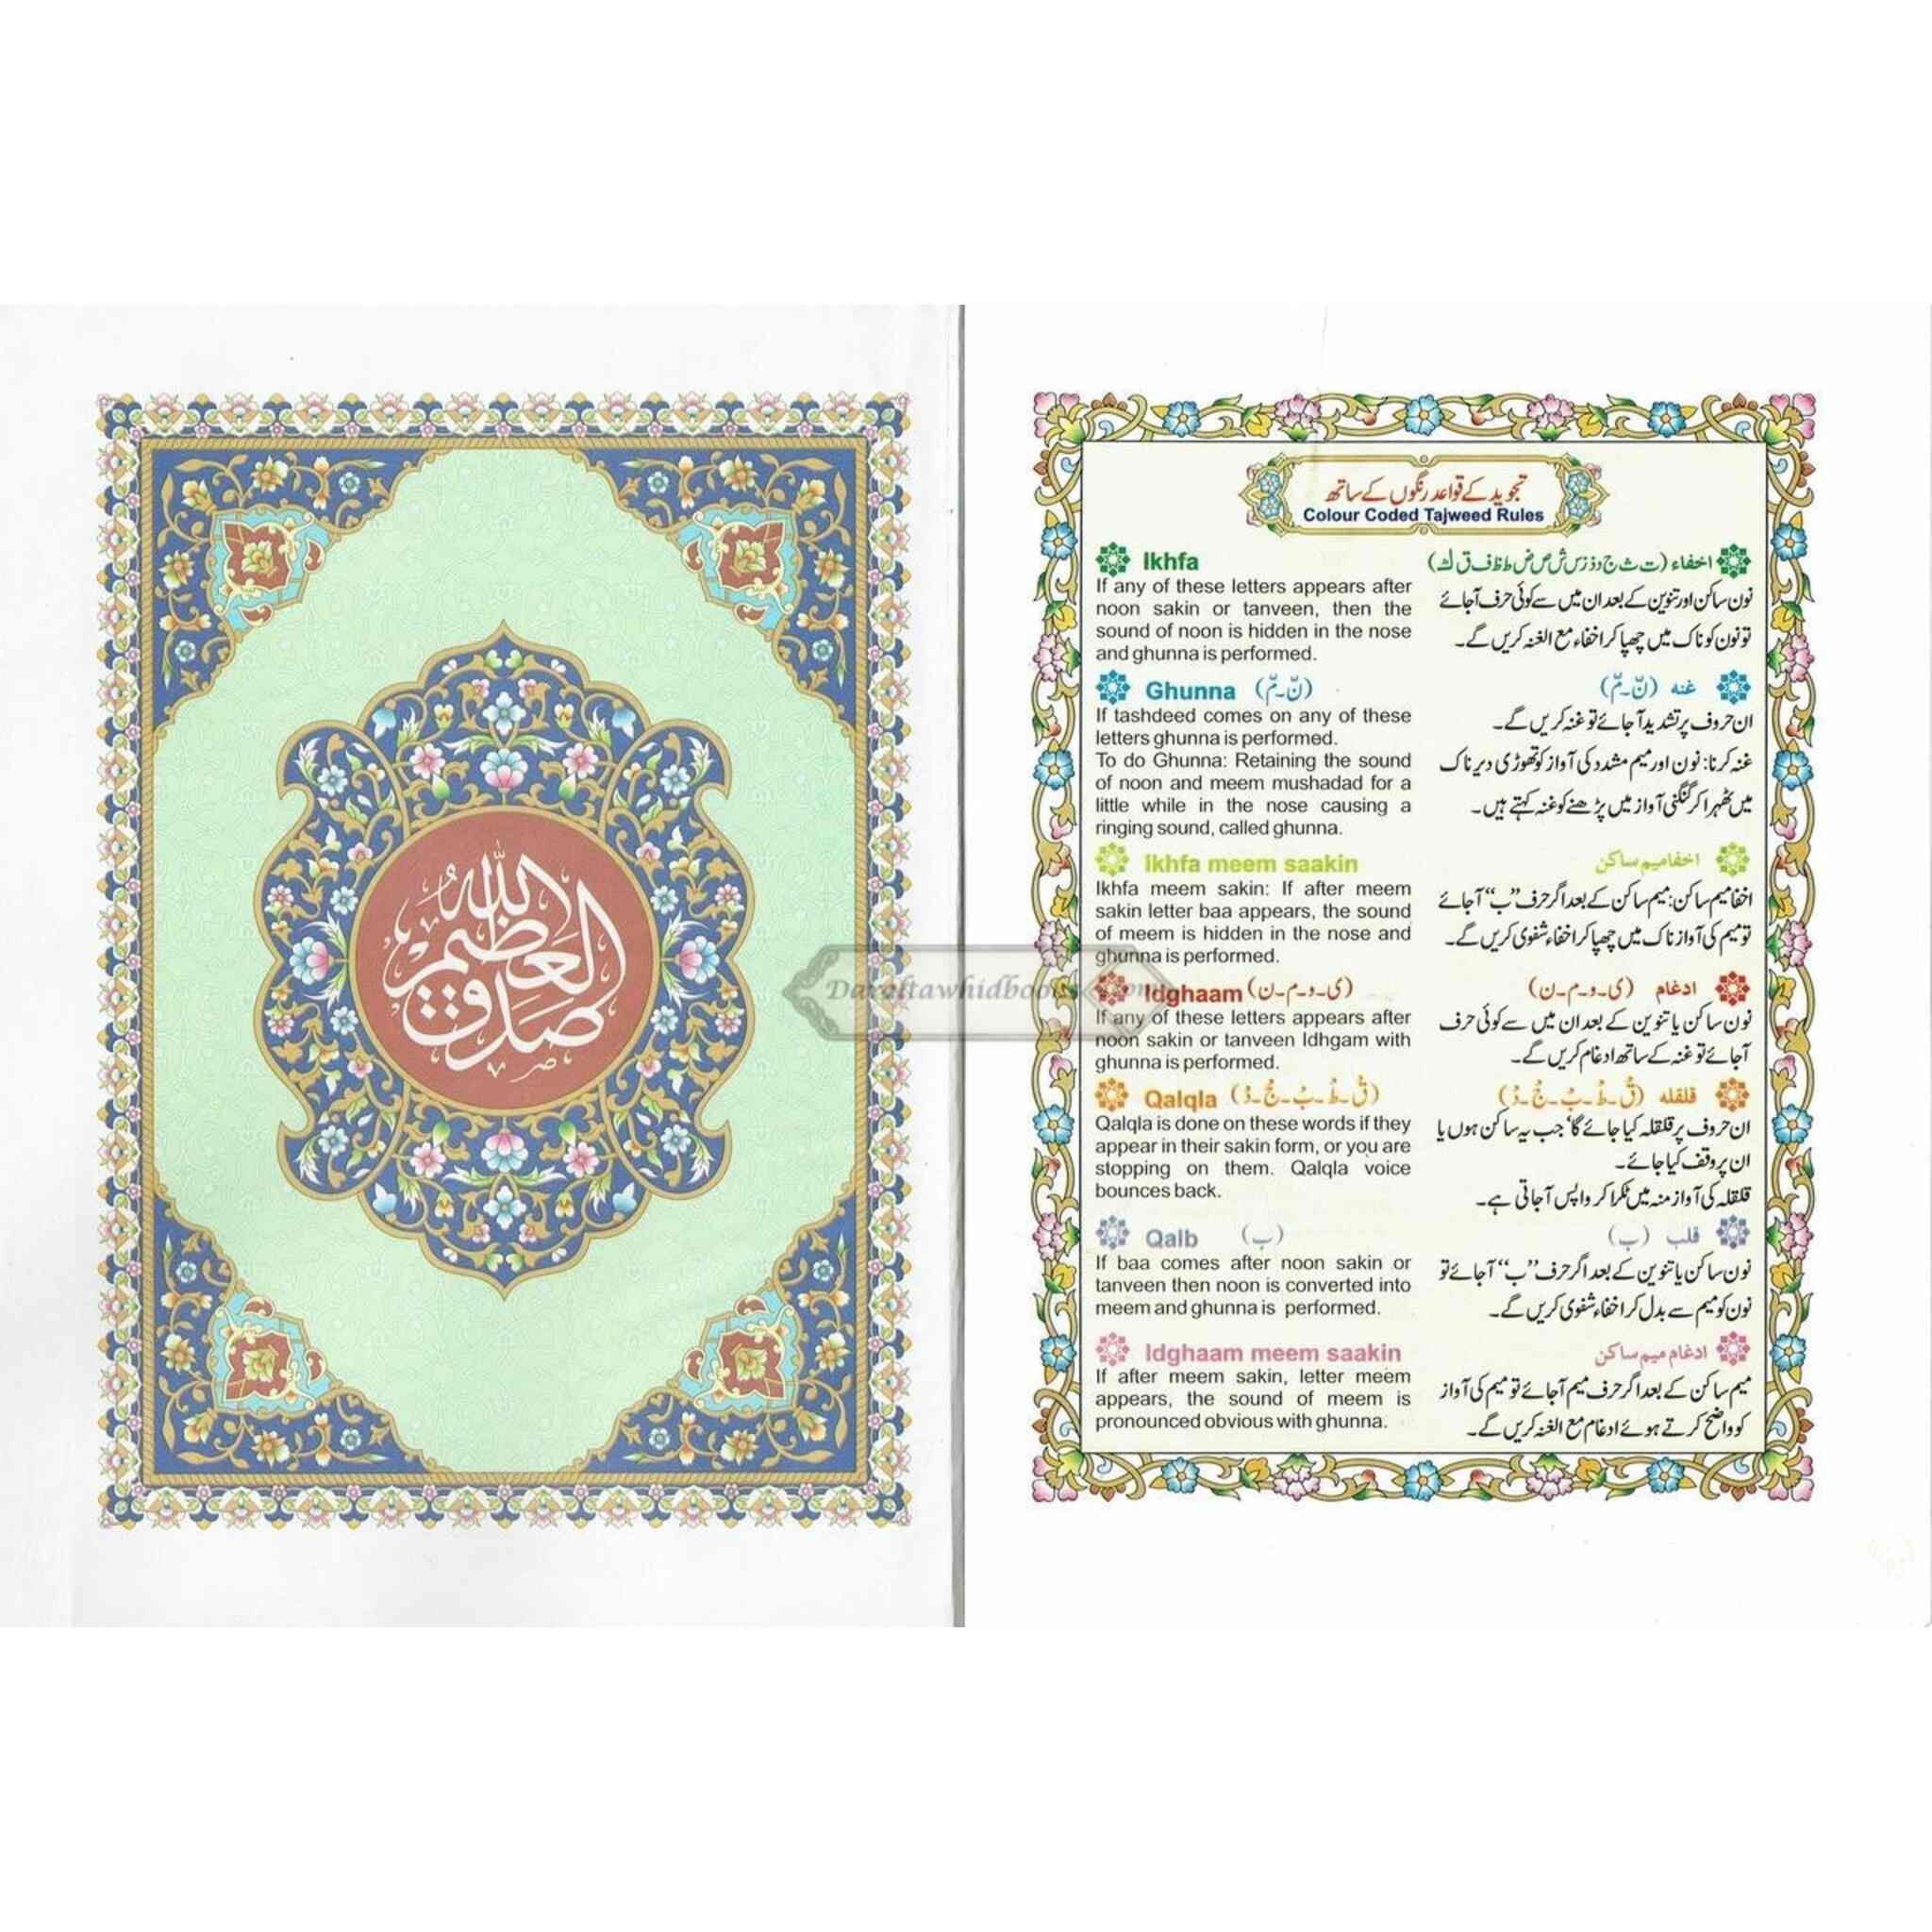 صدق الله العظيم
تجوید کے قواعد رنگوں کے ساتھ
Colour Coded Tajweed Rules
Ikhfa
If any of these letters appears after
noon sakin or tanveen, then the
sound of noon is hidden in the nose
and ghunna is performed.
Ghunna (نّ-مّ)
If tashdeed comes on any of these
letters ghunna is performed.
To do Ghunna: Retaining the sound
of noon and meem mushadad for a
little while in the nose causing a
ringing sound, called ghunna.
ikhfa meem saakin
Ikhfa meem sakin: If after meem
sakin letter baa appears, the sound
of meem is hidden in the nose and
ghunna is performed.
Idghaam (ی-و-م-ن)
If any of these letters appears after
noon sakin or tanveen Idhgam with
ghunna is performed.
Qalqla (قْ-طْ-بْ-جْ-دْ)
Qalqla is done on these words if they
appear in their sakin form, or you are
stopping on them. Qalqla voice
bounces back.
Qalb (ب)
If baa comes after noon sakin or
tanveen then noon is converted into
meem and ghunna is performed.
Idghaam meem saakin
If after meem sakin, letter meem
appears, the sound of meem is
pronounced obvious with ghunna.
اخفاء (ت ث ج د ذ ز س ش ص ض ط ظ ف ق ك)
نون ساکن اور تنوین کے بعد ان میں سے کوئی حرف آجائے
تو نون کو ناک میں چھپا کر اخفاء مع الغنہ کریں گے۔
غنه (نّ-مّ)
ان حروف پر تشدید آجائے تو غنہ کریں گے۔
غنہ کرنا: نون اور میم مشدد کی آواز کو تھوڑی دیر ناک
میں ٹھہرا کر گنگنی آواز میں پڑھنے کو غنہ کہتے ہیں۔
اخفا میم ساکن
اخفا میم ساکن: میم ساکن کے بعد اگر حرف ”ب“ آجائے
تو میم کی آواز ناک میں چھپا کر اخفاء شفوی کریں گے۔
ادغام (ی-و-م-ن)
نون ساکن یا تنوین کے بعد ان میں سے کوئی حرف
آجائے تو غنہ کے ساتھ ادغام کریں گے۔
قلقله (قْ-طْ-بْ-جْ-دْ)
ان حروف پر قلقلہ کیا جائے گا' جب یہ ساکن ہوں یا
ان پر وقف کیا جائے۔
قلقلہ کی آواز منہ میں ٹکرا کر واپس آجاتی ہے۔
قلب (ب)
نون ساکن یا تنوین کے بعد اگر حرف ”ب“ آجائے تو
نون کو میم سے بدل کر اخفاء شفوی کریں گے۔
ادغام میم ساکن
میم ساکن کے بعد اگر حرف میم آجائے تو میم کی آواز
کو واضح کرتے ہوئے ادغام مع الغنہ کریں گے۔